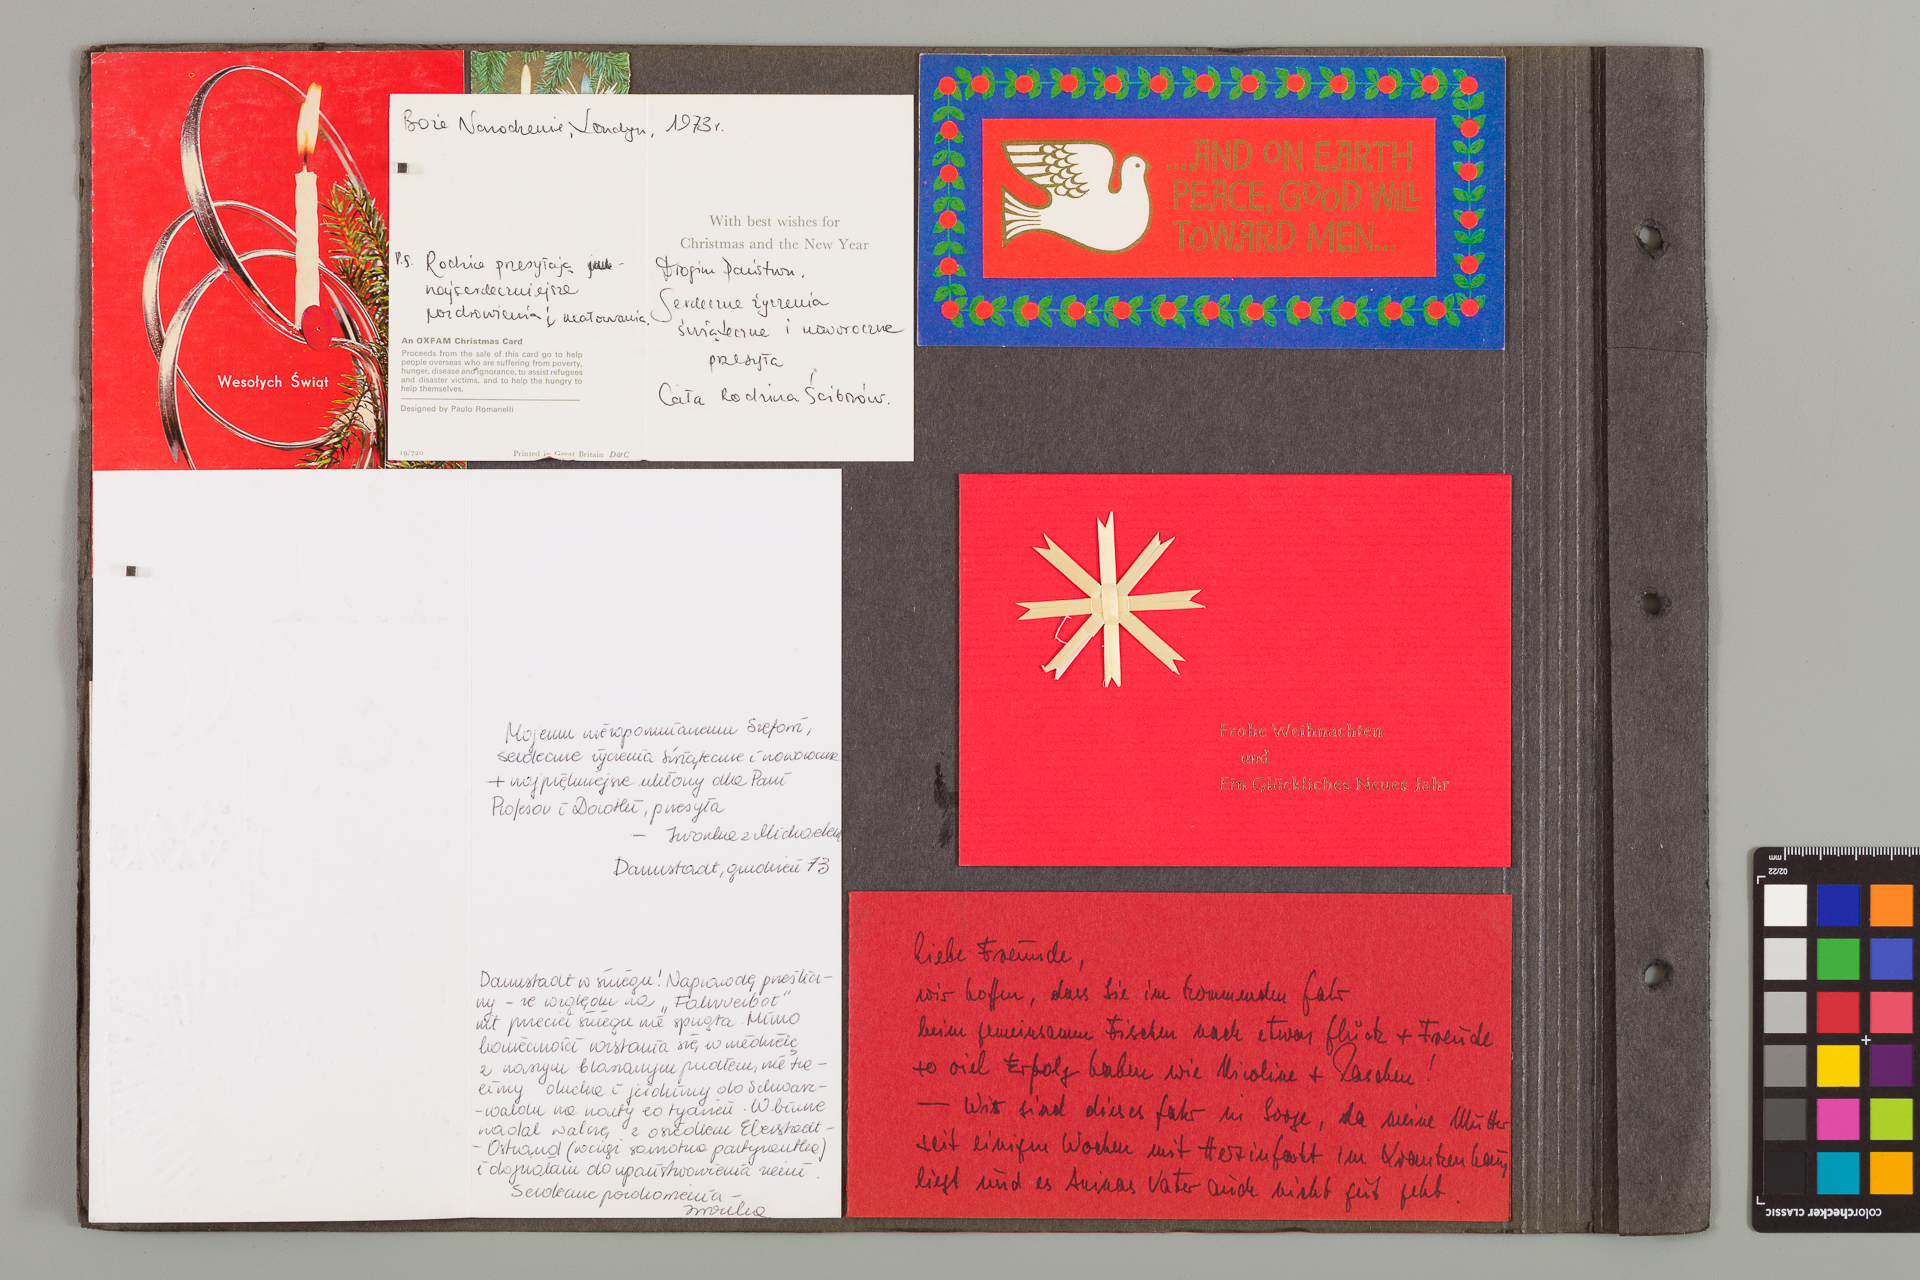 Wesołych Świąt
Boże Narodzenie, Londyn, 1973 r.
P.S. Rodzice przesyłają
najserdeczniejsze
pozdrowienia i ucałowania.
An OXFAM Christmas Card
Proceeds from the sale of this card go to help
people overseas who are suffering from poverty,
hunger, disease and ignorance, to assist refugees
and disaster victims, and to help the hungry to
help themselves.
Designed by Paulo Romanelli
19/720
Printed in Great Britain D&C
With best wishes for
Christmas and the New Year
Drogim Państwu,
Serdeczne życzenia
świąteczne i noworoczne
przesyła
Cała Rodzina Ściborów.
...AND ON EARTH
PEACE, GOOD WILL
TOWARD MEN...
Mojemu niezapomnianemu Szefowi,
serdeczne życzenia świąteczne i noworoczne
+ najpiękniejsze ukłony dla Pani
Profesor i Dorotki, przesyła
— Iwonka z Michaelem
Darmstadt, grudzień 73
Darmstadt w śniegu! Naprawdę prześlicz-
ny - ze względu na "Fahrverbot"
nikt przecież śniegu nie sprząta. Mimo
konieczności wstania się w niedzielę
z naszym blaszanym pudłem, nie tra-
cimy ducha i jeździmy do Schwarz-
-waldu na narty co tydzień. W biurze
nadal walczę z osiedlem Eberstadt-
- Ostrand (wciąż samotna partyzantka)
i dojrzałam do upaństwowienia ziemi.
Serdeczne pozdrowienia -
Iwonka
Frohe Weihnachten
und
Ein Glückliches Neues Jahr
Liebe Freunde,
wir hoffen, dass Sie im kommenden Jahr
beim gemeinsamen Fischen noch etwas Glück + Freude
so viel Erfolg haben wie Nicoline +
— Wir sind dieses Jahr in Sorge, da meine Mutter
seit einigen Wochen mit Herzinfarkt im Krankenhaus
liegt und es Aninas Vater auch nicht gut geht.
mm
02/22
colorchecker CLASSIC